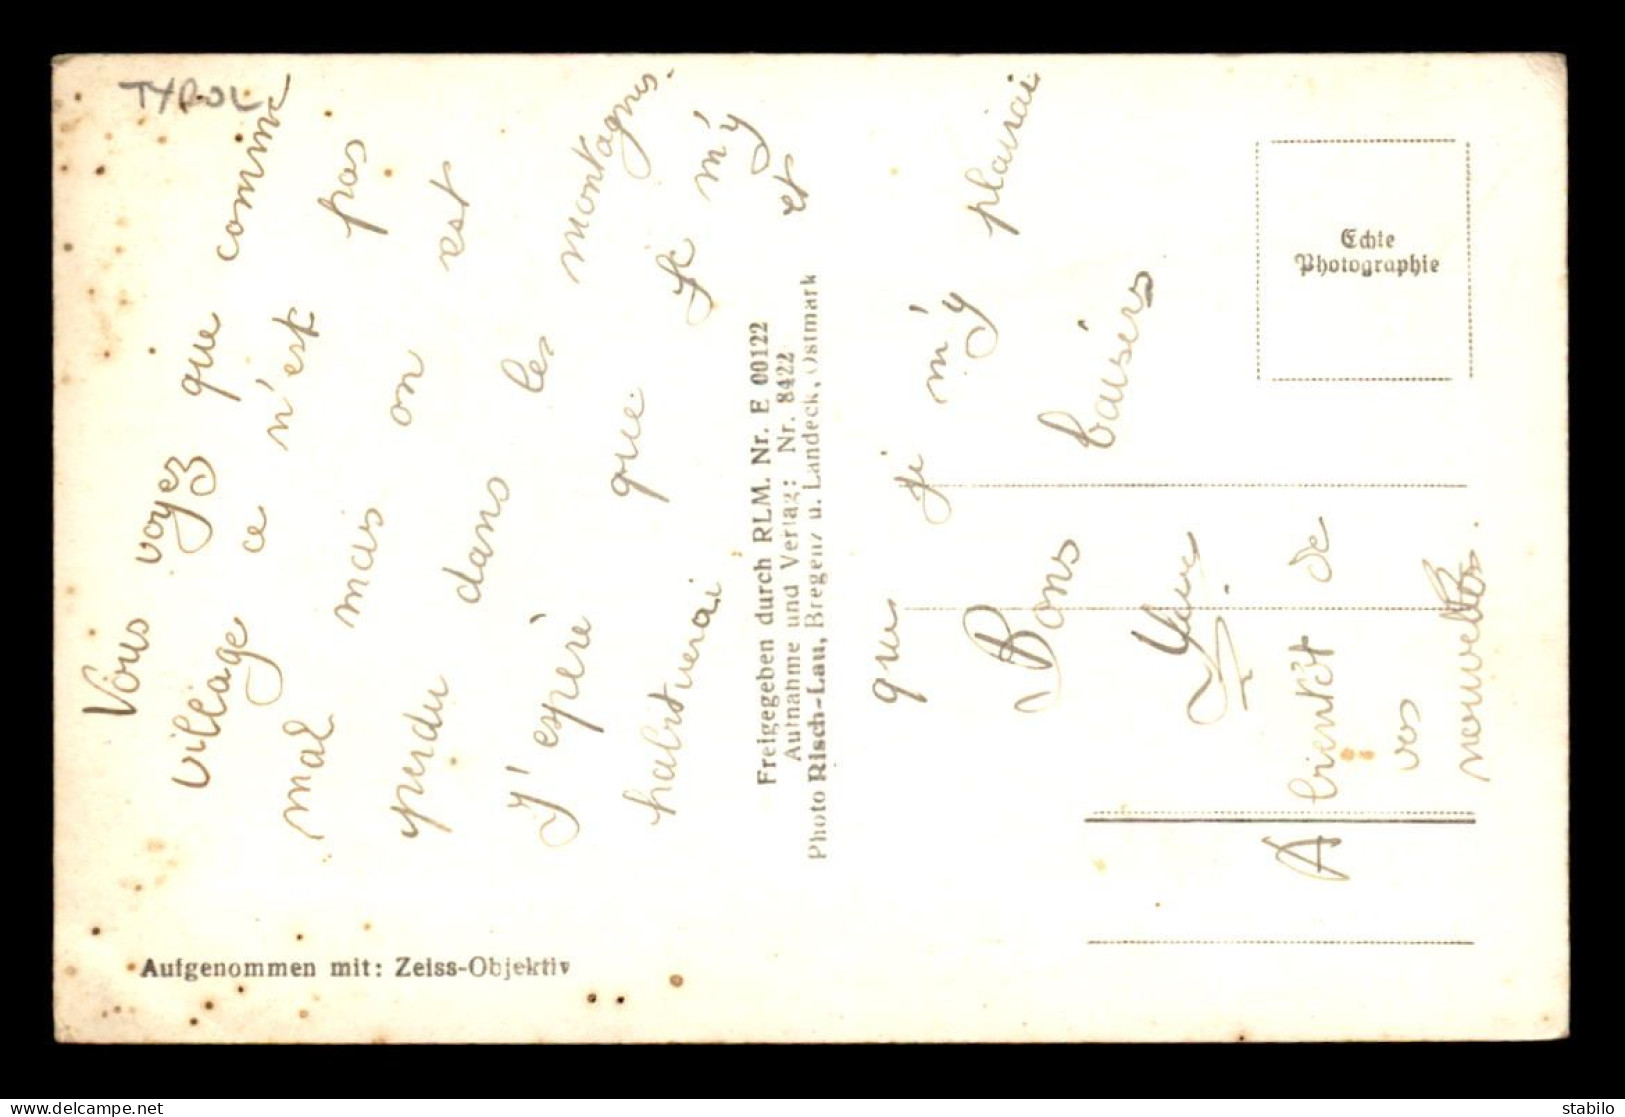 TYROL
Vous voyez que comme
village ce n'est pas
mal mais on est
perdu dans les montagnes.
J'espère que je m'y
habituerai et
que je m'y plairai
Bons baisers
A bientôt de
vos nouvelles.
Freigegeben durch RLM. Nr. E 00122
Aufnahme und Verlag: Nr. 8422
Photo Risch-Lau, Bregenz u. Landeck, Ostmark
Echte
Photographie
Aufgenommen mit: Zeiss-Objektiv
stabilo